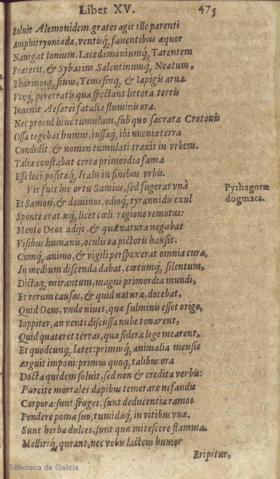 Liber XV. 475
soluit Alemonidem. grates agit ille parenti
Amphitryoniada, ventisq́; fauentibus aequor
Nauigat Ionium. Lacedaemoniumq́; Tarentem
Praeterit, & Sybarim Salentinumq́; Neatum,
Thurinosq́; sinus, Temesenq́; & Iapigis arua.
Vixq́; pererratis quae spectant littora terris
Inuenit Aesarei fatalia fluminis ora.
Nec procul hinc tumulum, sub quo sacrata Crotonis
Ossa tegebat humus. iussaq́; ibi moenia terra
Condidit, & nomen tumulati traxit in vrbem.
Talia constabat certa primordia fama
Esse loci, positaeq́; Italis in finibus vrbis.
Vir fuit hic ortu Samius, sed fugerat vnà
Et Samon, & dominos, odioq́; tyrannidis exul
Sponte erat. isq́; licet coeli regione remotus:
Mente Deos adijt, & quae natura negabat
Visibus humanis, oculis ea pectoris hausit.
Cumq́; animo, & vigili perspexerat omnia cura,
In medium discenda dabat, coetumq́; silentum,
Dictaq́; mirantum, magni primordia mundi,
Et rerum causas, & quid natura, docebat,
Quid Deus, vnde niues, quae fulminis esset origo,
Iuppiter, an venti discussa nube tonarent,
Quid quateret terras, qua sidera lege mearent,
Et quodcunq́; latet: primusq́; animalia mensis
Arguit imponi: primus quoq́; talibus ora
Docta quidem soluit, sed non & credita verbis:
Parcite mortales dapibus temerare nefandis
Corpora: sunt fruges, sunt deducentia ramos
Pondere poma suo, tumidaeq́; in vitibus vuae.
Sunt herbae dulces, sunt quae mitescere flamma,
Mollirìq́; queant, nec vobis lacteus humor
Eripitur,
Pythagorae
dogmata.
Biblioteca de Galicia